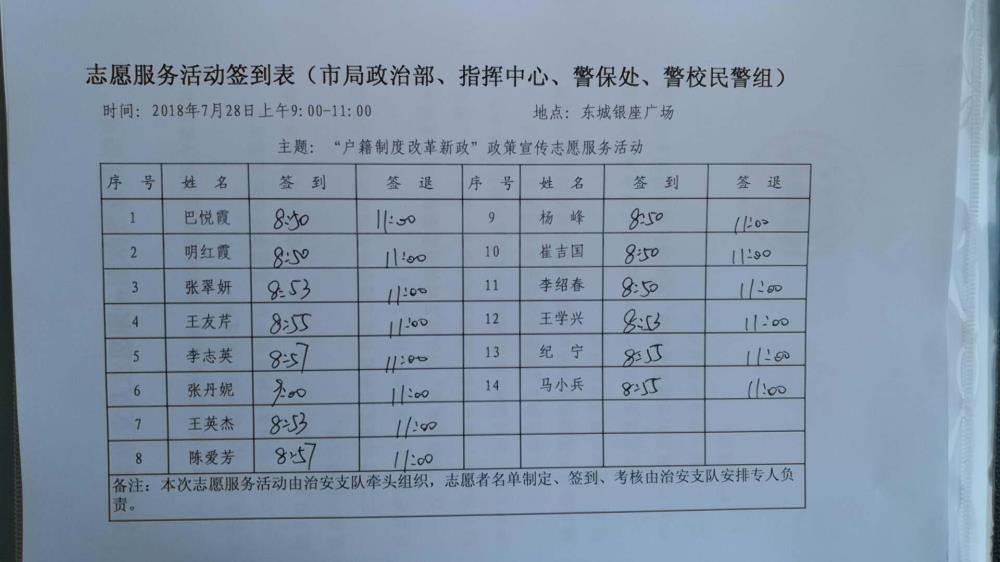 志愿服务活动签到表（市局政治部、指挥中心、警保处、警校民警组）
时间：2018年7月28日上午9:00-11:00 地点：东城银座广场
主题：“户籍制度改革新政”政策宣传志愿服务活动
序 号 姓 名 签 到 签 退 序 号 姓 名 签 到 签 退
1 巴悦霞 8:50 11:00 9 杨 峰 8:50 11:00
2 明红霞 8:50 11:00 10 崔吉国 8:50 11:00
3 张翠妍 8:53 11:00 11 李绍春 8:50 11:00
4 王友芹 8:55 11:00 12 王学兴 8:53 11:00
5 李志英 8:57 11:00 13 纪 宁 8:55 11:00
6 张丹妮 9:00 11:00 14 马小兵 8:55 11:00
7 王英杰 8:53 11:00
8 陈爱芳 8:57 11:00
备注：本次志愿服务活动由治安支队牵头组织，志愿者名单制定、签到、考核由治安支队安排专人负
责。